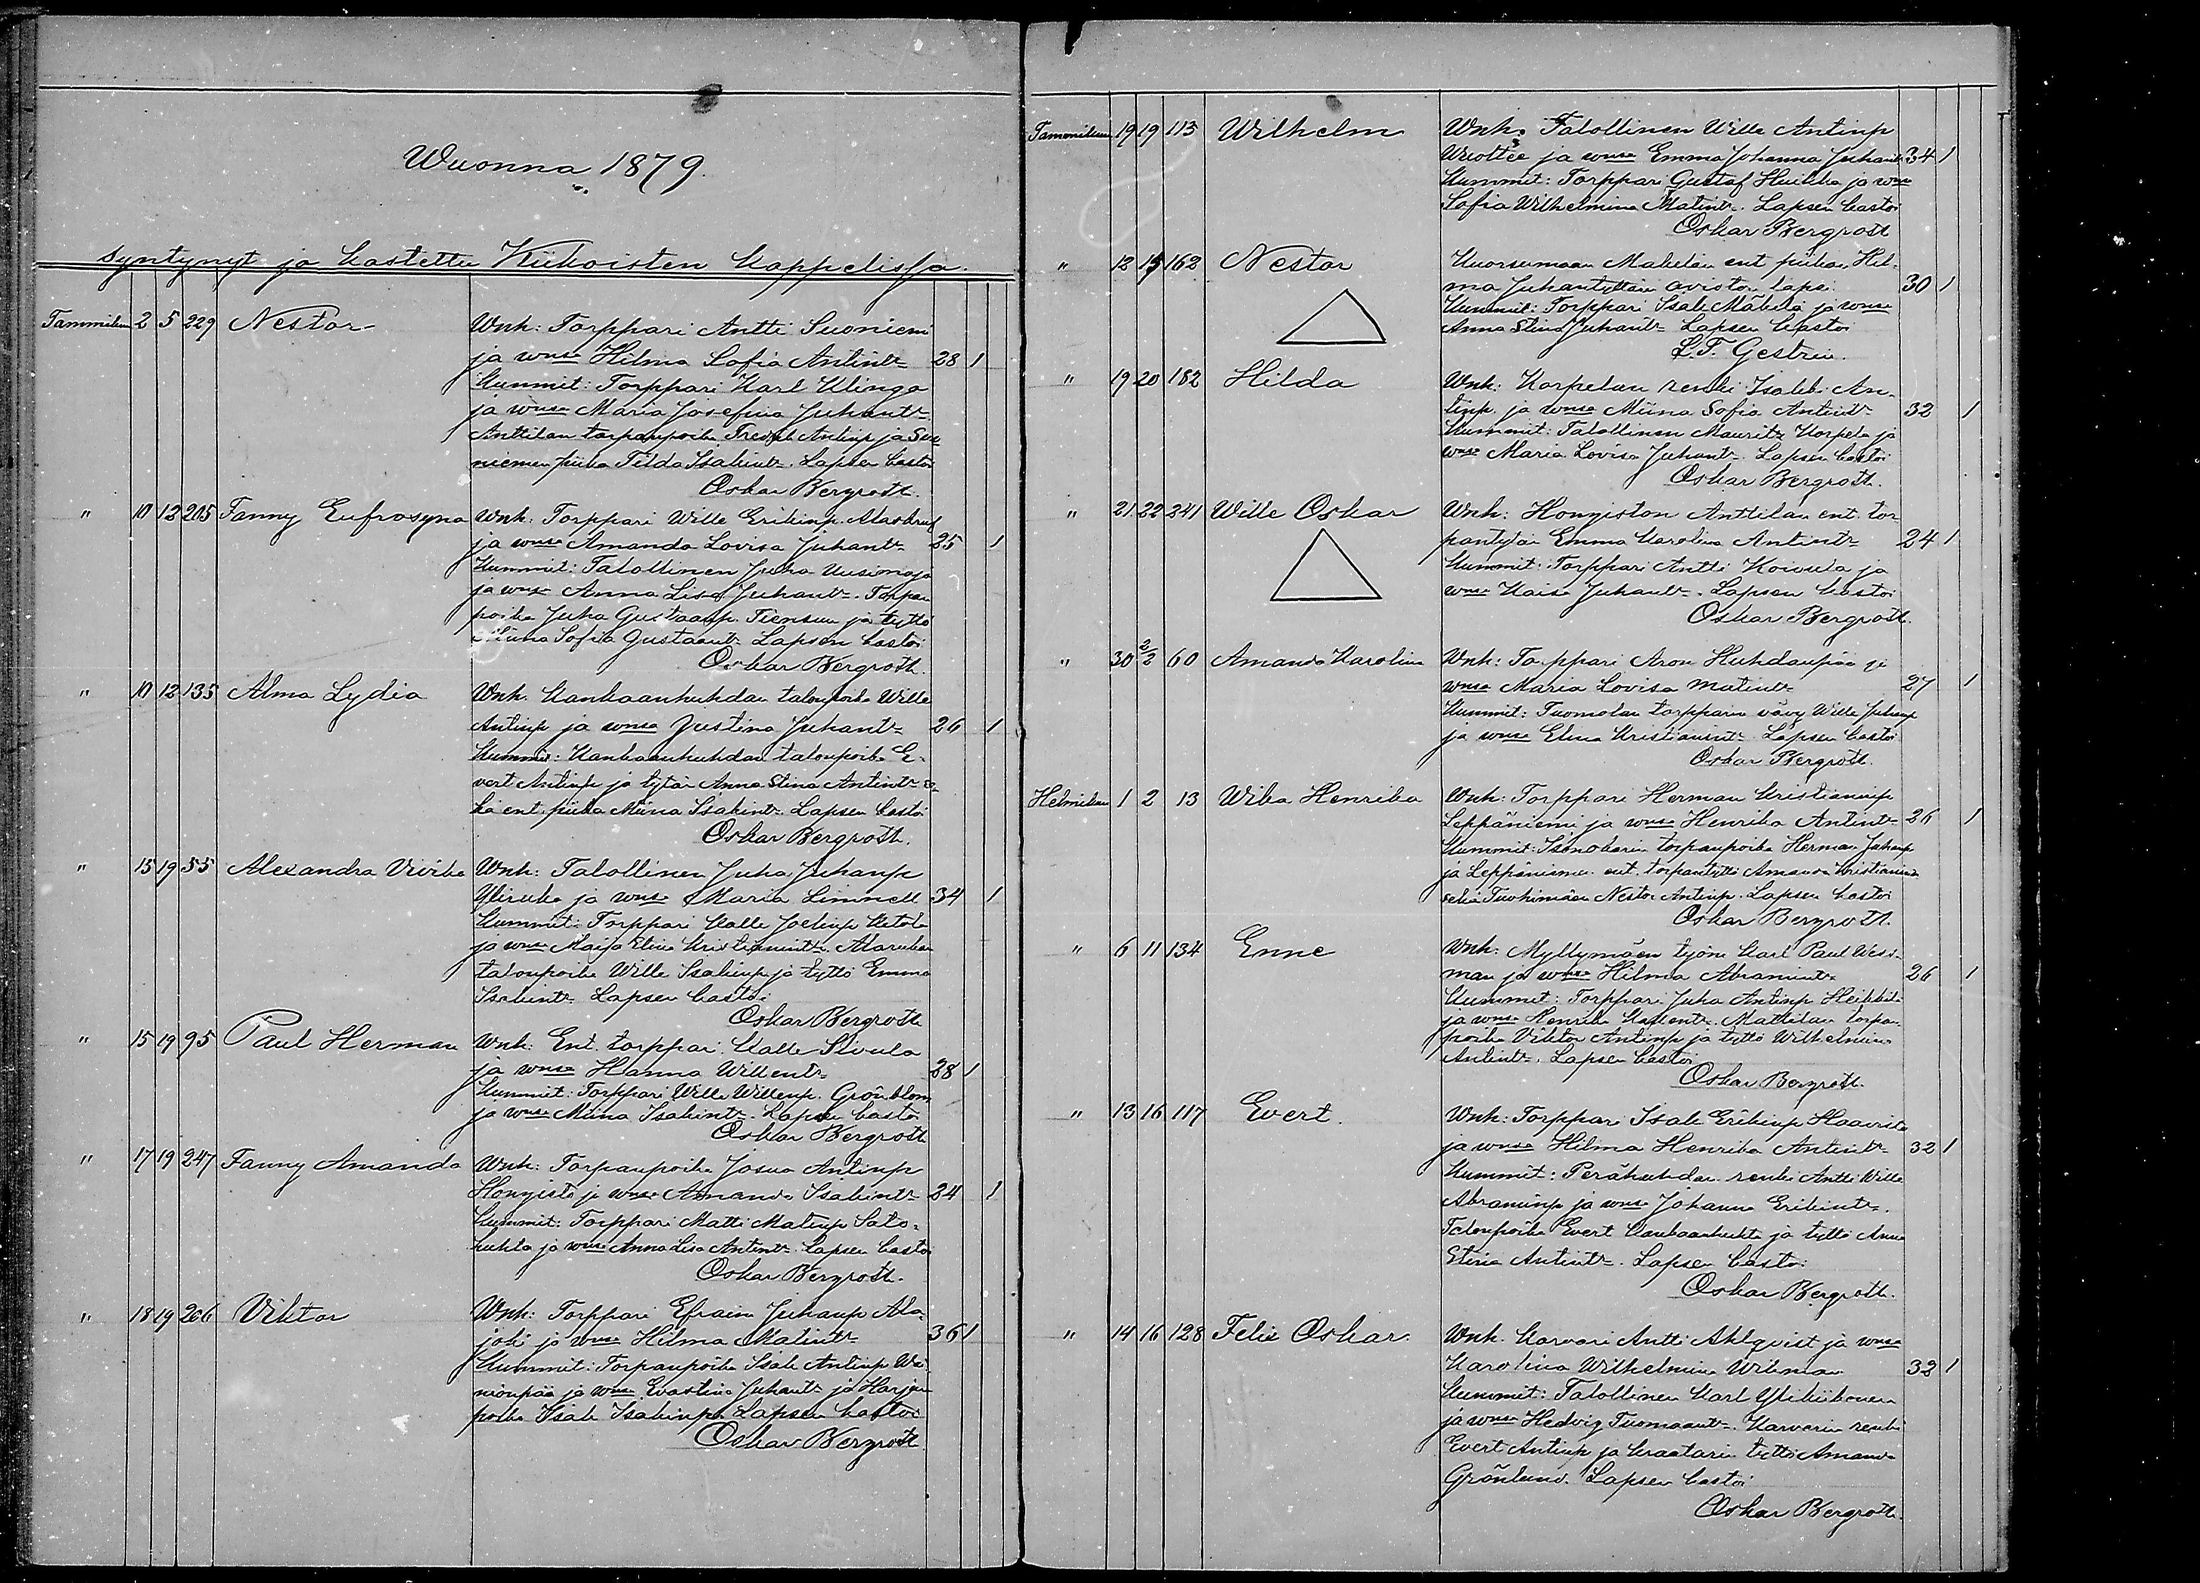 Wuonna 1879.
syntynyt ja kastettu Kiikoisten kappelissa.
Tammikuu 2 5 229 Nestor Wnh: Torppari Antti Suoniemi
ja wmsa Hilma Sofia Antint. 28 1
Kummit: Torppari Karl Ulinga
ja wmsa Maria Josefina Juhant.
Anttilan torpanpoika Fredrik Antinp ja Suo
niemen piika Tilda Isakint. Lapsen kastoi
Oskar Bergroth.
" 10 12 205 Fanny Eufrosyna Wnh. Torppari Wille Erikinp.
ja wmsa Amanda Lovisa Juhant. 25 1
Kummit: Talollinen Juha Uusimaja
ja wmsa Anna Lisa Juhant. Torpan
poika Juha Gustaanp. Tiensuu ja tyttö
Miina Sofia Gustaant. Lapsen kastoi
Oskar Bergroth.
" 10 12 135 Alma Lydia Wnh. Kankaanhuhdan talonpoika Wille
Antinp ja wmsa Justina Juhant. 26 1
Kummit: Kankaanhuhdan talonpoika E-
vert Antinp ja tytär Anna Stina Antint. se-
kä ent. piika Miina Isakint. Lapsen kastoi
Oskar Bergroth.
" 15 19 55 Alexandra Vivika Wnh: Talollinen Juha Juhanp
ja wmsa Maria Limnell 34 1
Kummit: Torppari Kalle Joelinp Ketola
ja wmsa Maija Stina Kristianint.
talonpoika Wille Isakinp ja tyttö Emma
Isakint. Lapsen kastoi
Oskar Bergroth
" 15 19 95 Paul Herman Wnh: Ent. torppari Kalle Sivula
ja wmsa Hanna Willent. 28 1
Kummit: Torppari Wille Willenp. Grönblom
ja wmsa Miina Isakint. Lapsen kastoi
Oskar Bergroth
" 17 19 247 Fanny Amanda Wnh: Torpanpoika Josua Antinp
Hongisto ja wmsa Amanda Isakint. 24 1
Kummit: Torppari Matti Matinp Salo-
huhta ja wmsa Anna Lisa Antint. Lapsen kastoi
Oskar Bergroth.
" 18 19 206 Viktor Wnh: Torppari Efraim Juhanp Ala-
joki ja wmsa Hilma Matint. 36 1
Kummit: Torpanpoika Isak Antinp Wai-
nionpää ja wmsa Evastina Juhant. ja Harjun
poika Isak Isakinp. Lapsen kastoi
Oskar Bergroth
Tammikuu 19 19 113 Wilhelm Wnh. Talollinen Wille Antinp
ja wmsa Emma Johanna Juhant. 34 1
Kummit: Torppari Gustaf Huikka ja wmsa
Sofia Wilhelmina Matint. Lapsen kastoi
Oskar Bergroth
" 12 15 162 Nestor Kuorsumaan Mäkelän ent piikan Hil-
ma Juhantyttären avioton lapsi 30 1
Kummit: Torppari Isak Mäkelä ja wmsa
Anna Stina Juhant. Lapsen kastoi
L. F. Gestrin.
" 19 20 182 Hilda Wnh: Korpelan renki Isak An-
tinp. ja wmsa Miina Sofia Antint. 32 1
Kummit: Talollinen Mauritz Korpela ja
wmsa Maria Lovisa Juhant. Lapsen kastoi
Oskar Bergroth.
" 21 22 241 Wille Oskar Wnh: Hongiston Anttilan ent. tor
pantytär Emma Karolina Antint. 24 1
Kummit: Torppari Antti Koivula ja
wmsa Kaisa Juhant. Lapsen kastoi
Oskar Bergroth.
" 30 2/2 60 Amanda Karolina Wnh: Torppari Aron Huhdanpää ja
wmsa Maria Lovisa Matint. 27 1
Kummit: Tuomolan torpparin vävy Wille Juhanp
ja wmsa Elina Kristianint. Lapsen kastoi
Oskar Bergroth.
Helmikuu 1 2 13 Wika Henrika Wnh: Torppari Herman Kristianinp
Leppäniemi ja wmsa Henrika Antint. 26 1
Kummit: Isonokarin torpanpoika Herman Juhanp
ja Leppäniemen ent. torpantyttö Amanda Kristianint.
sekä Tuohimäen Nestor Antinp. Lapsen kastoi
Oskar Bergroth.
" 6 11 134 Enne Wnh: Myllymäen tjöns Karl Paul Wess-
man ja wmsa Hilma Abramint. 26 1
Kummit: Torppari Juha Antinp Heikkilä
ja wmsa Henrika Kallent. Mattilan torpan
poika Viktor Antinp ja tyttö Wilhelmina
Antint. Lapsen kastoi
Oskar Bergroth.
" 13 16 117 Evert. Wnh: Torppari Isak Erikinp Haavisto
ja wmsa Hilma Henrika Antint. 32 1
Kummit: Peräkuhdan renki Antti Wille
Abraminp ja wmsa Johanna Erikint.
Talonpoika Evert Kankaanhuhta ja tyttö Anna
Stina Antint. Lapsen kastoi
Oskar Bergroth.
" 14 16 128 Felix Oskar. Wnh. Karvari Antti Ahlqvist ja wmsa
Karolina Wilhelmina Wikman 32 1
Kummit: Talollinen Karl Ylikiikonen
ja wmsa Hedvig Tuomaant. Karvarin renki
Evert Antinp ja kraatarin tyttö Amanda
Grönlund. Lapsen kastoi
Oskar Bergroth.